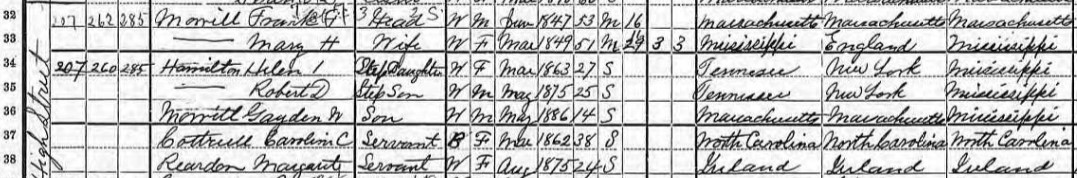 High Street
32 207 262 285 Morrill Frank F Head W M Jun 1847 53 M 16 Massachusetts Massachusetts Massachusetts
33 — Mary H Wife W F Mar 1849 51 M 16 3 3 Mississippi England Mississippi
34 207 260 285 Hamilton Helen I Step Daughter W F Mar 1863 27 S Tennessee New York Mississippi
35 — Robert D Step Son W M May 1875 25 S Tennessee New York Mississippi
36 Morrill Gayden W Son W M May 1886 14 S Massachusetts Massachusetts Mississippi
37 Cottrell Carolin C Servant B F Mar 1862 38 S North Carolina North Carolina North Carolina
38 Reardon Margaret Servant W F Aug 1875 24 S Ireland Ireland Ireland